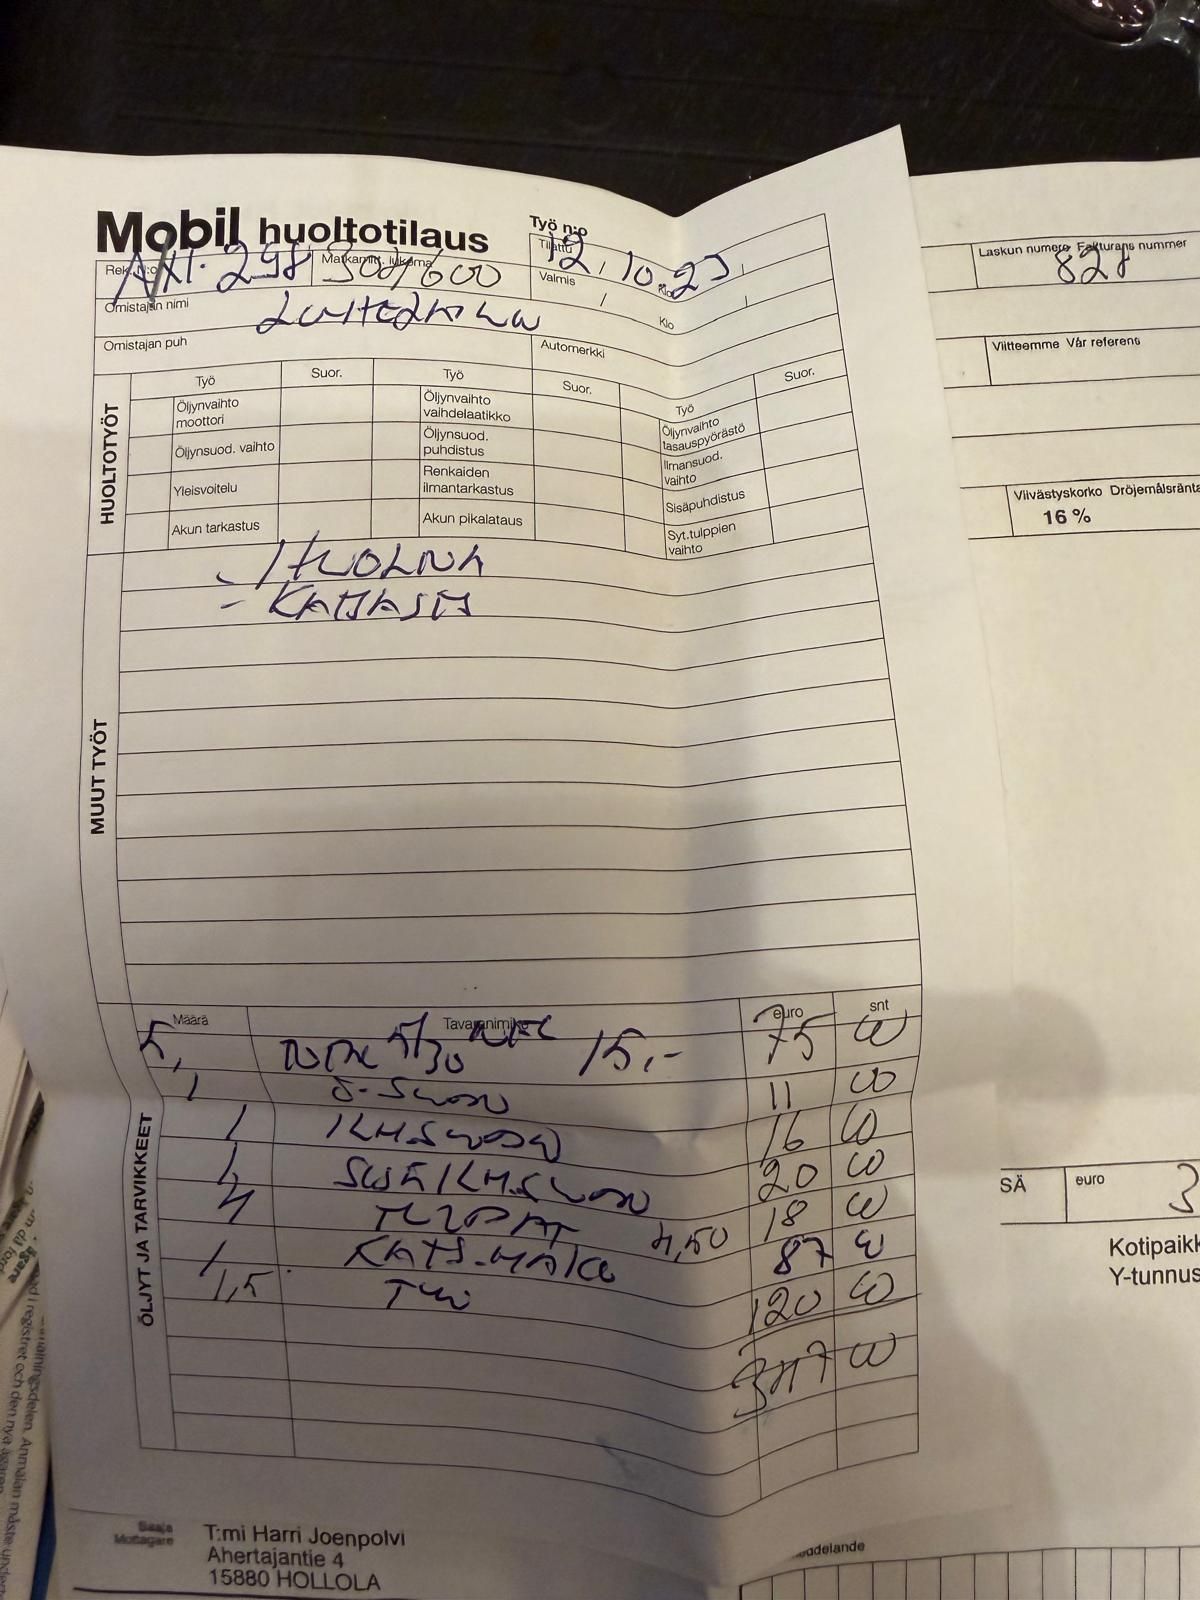 Mobil huoltotilaus
Työ n:o
Tilattu 12.10.23
Rek. N:o 298 Matkamitt. lukema
Valmis / Klo
Omistajan nimi
Klo
Omistajan puh Automerkki
HUOLTOTYÖT
Työ Suor. Työ Suor. Työ Suor.
Öljynvaihto moottori
Öljynvaihto vaihdelaatikko
Öljynvaihto tasauspyörästö
Öljynsuod. vaihto
Öljynsuod. puhdistus
Ilmansuod. vaihto
Yleisvoitelu
Renkaiden ilmantarkastus
Sisäpuhdistus
Akun tarkastus
Akun pikalataus
Syt.tulppien vaihto
MUUT TYÖT
- HUOLTO
- KATSASTUS
ÖLJYT JA TARVIKKEET
Määrä Tavaranimike euro snt
5, 5/30 15,- 75 00
1 Ö-SUOD 11 00
1 ILM.SUOD 16 00
1 SIS.ILM.SUOD 20 00
4 TULPAT 4,50 18 00
1 KATS.MAKSU 87 00
1,5 TYÖ 120 00
347 00
Saaja
Mottagare
T:mi Harri Joenpolvi
Ahertajantie 4
15880 HOLLOLA
Laskun numero Fakturans nummer
828
Viitteemme Vår referens
Viivästyskorko Dröjemålsränta
16 %
SÄ euro 3
Kotipaikk
Y-tunnus
ddelande